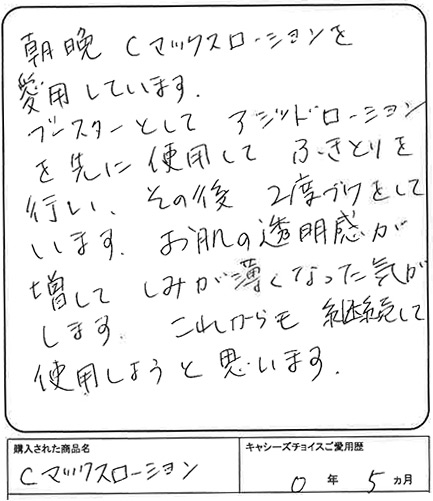 朝晩 Cマックスローションを
愛用しています.
ブースターとして アシッドローション
を先に使用して ふきとりを
行い、その後 2度づけをして
います. お肌の透明感が
増して しみが薄くなった気が
します. これからも 継続して
使用しようと思います.
購入された商品名
Cマックスローション
キャシーズチョイスご愛用歴
0年 5ヵ月